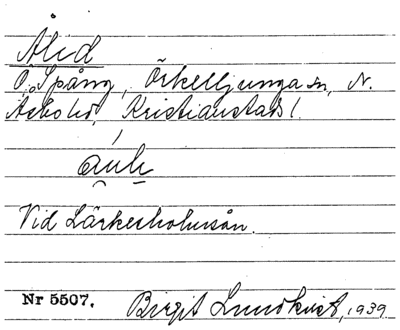 Ålid
Ö. Spång, Örkelljunga sn, N.
Åsbo hd, Kristianstads l.
Vid Lärkesholmsån.
Nr 5507. Birgit Lundkvist, 1939